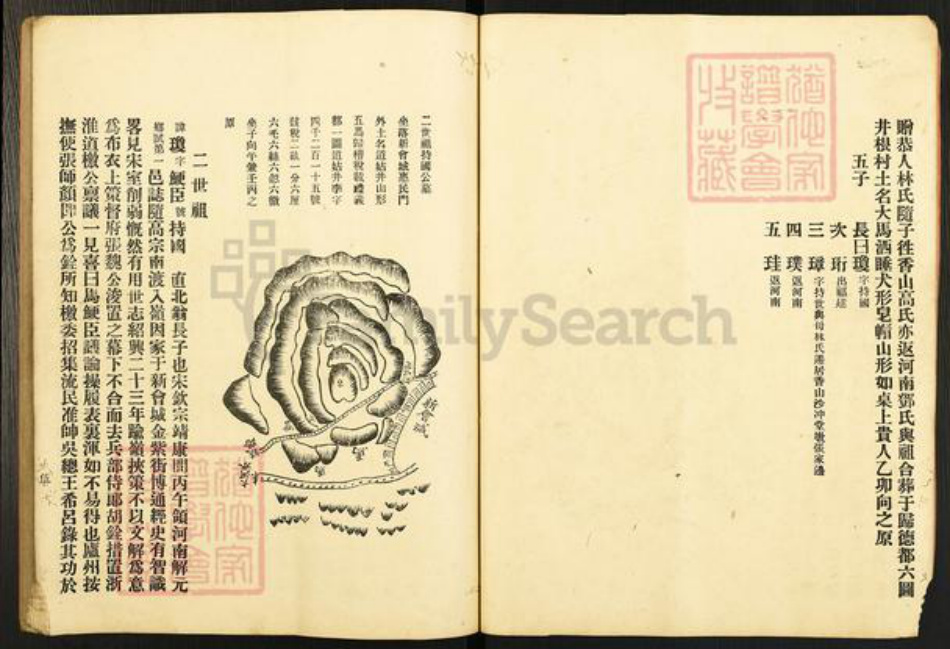 贈恭人林氏隨子徃香山高氏亦返河南鄧氏與祖合葬于歸德都六圖
井根村土名大馬洒睡犬形皂帽山形如桌上貴人乙卯向之原
五子
長曰瓊字持國
次 珩出福廷
三 璋字持世與母林氏遷居香山沙冲堂墩張家邊
四 璞返河南
五 珪返河南
二世祖持國公墓
坐落新會城惠民門
外土名道姑井山形
五馬歸槽稅載禮義
都一圖道姑井李字
四千二百一十五號
該稅二畝一分六厘
六毛六絲六忽六微
坐子向午兼壬丙之
原
新會城
馬
馬
二世祖
諱瓊字鯁臣號持國 直北翁長子也宋欽宗靖康間丙午領河南解元
鄉試第一邑誌隨高宗南渡入嶺因家于新會城金紫街博通經史有智識
畧見宋室削弱慨然有用世志紹興二十三年踰嶺挾策不以文解爲意
爲布衣上策督府張魏公浚置之幕下不合而去兵部侍郎胡銓措置浙
淮道檄公禀議一見喜曰馬鯁臣議論操履表裏渾如不易得也廬州按
撫使張師顏即公爲銓所知檄委招集流民准帥吳總王希呂錄其功於
FamilySearch